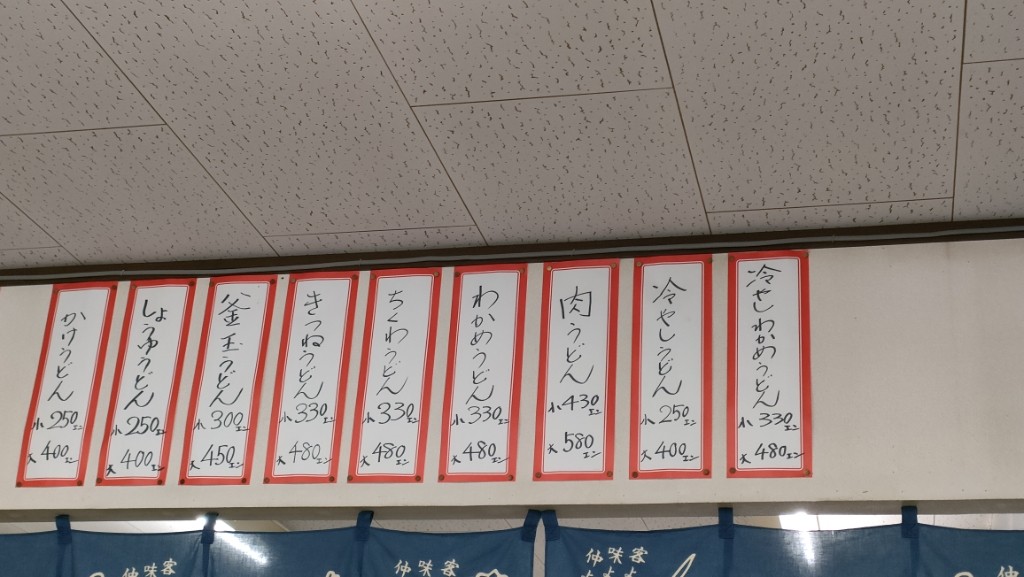 かけうどん
小250エン
大400エン
しょうゆうどん
小250エン
大400エン
釜玉うどん
小300エン
大450エン
きつねうどん
小330エン
大480エン
ちくわうどん
小330エン
大480エン
わかめうどん
小330エン
大480エン
肉うどん
小430エン
大580エン
冷やしうどん
小250エン
大400エン
冷やしわかめうどん
小330エン
大480エン
客
味
仲
客
味
仲
客
味
仲